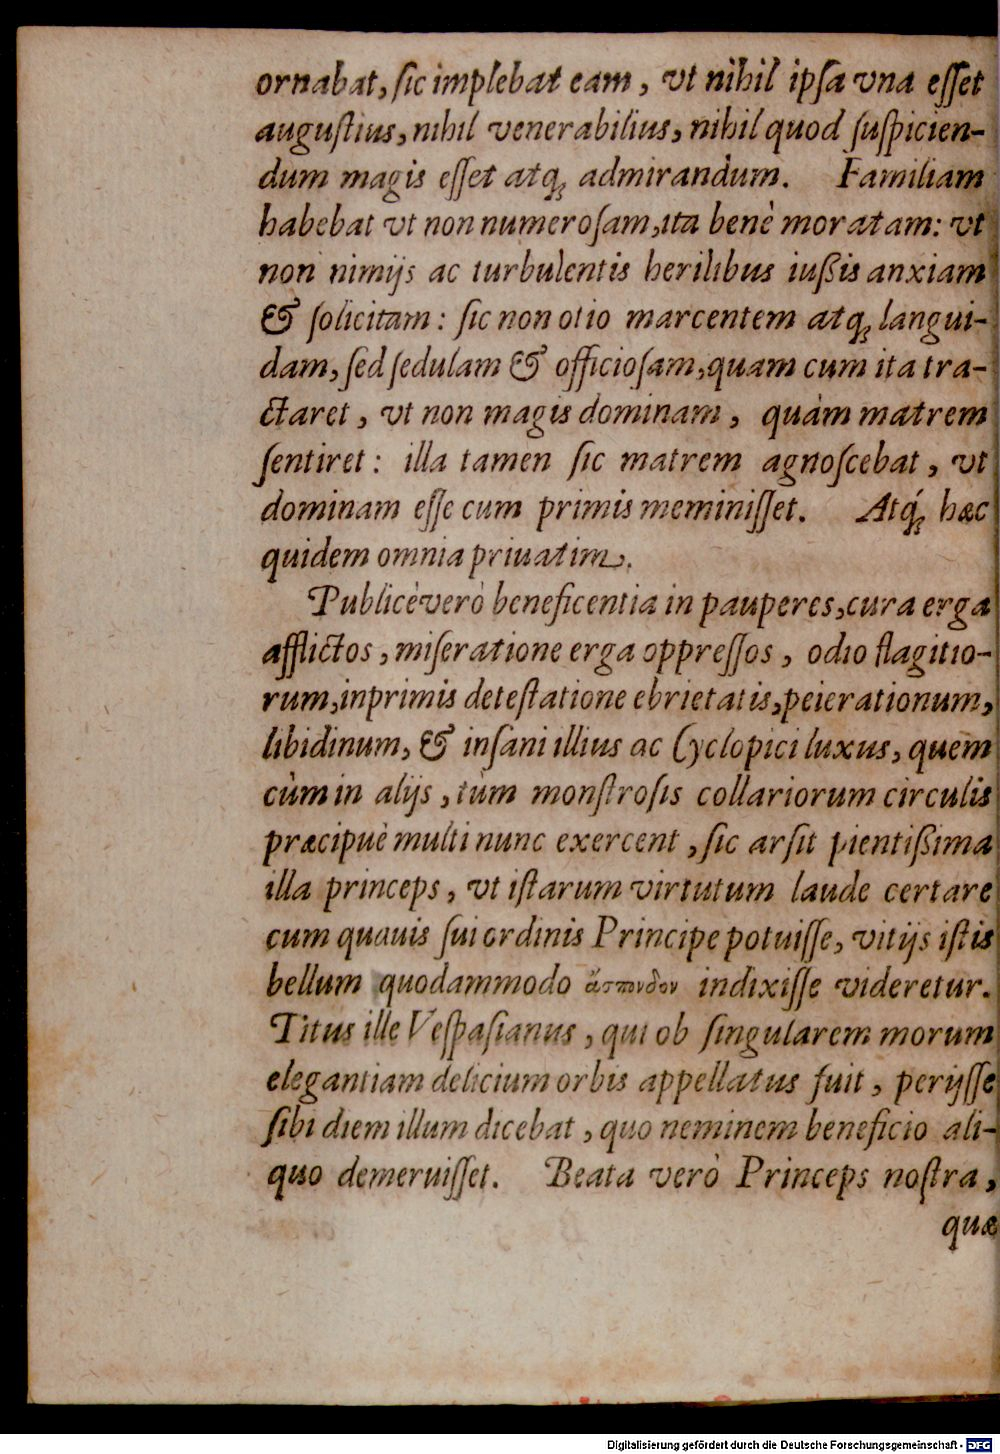 ornabat, ſic implebat eam, vt nihil ipſa vna eſſet
auguſtius, nihil venerabilius, nihil quod ſuſpicien-
dum magis eſſet atq́; admirandum. Familiam
habebat vt non numeroſam, ita benè moratam: vt
non nimijs ac turbulentis herilibus iußis anxiam
& ſolicitam: ſic non otio marcentem atq; langui-
dam, ſed ſedulam & officioſam, quam cum ita tra-
ctaret, vt non magis dominam, quàm matrem
ſentiret: illa tamen ſic matrem agnoſcebat, vt
dominam eſſe cum primis meminiſſet. Atq́; hæc
quidem omnia priuatim.
Publicè verò beneficentia in pauperes, cura erga
afflictos, miſeratione erga oppreſſos, odio flagitio-
rum, inprimis deteſtatione ebrietatis, peierationum,
libidinum, & inſani illius ac Cyclopici luxus, quem
cùm in alijs, tùm monſtroſis collariorum circulis
præcipuè multi nunc exercent, ſic arſit pientißima
illa princeps, vt iſtarum virtutum laude certare
cum quauis ſui ordinis Principe potuiſſe, vitijs iſtis
bellum quodammodo ἄσπονδον indixiſſe videretur.
Titus ille Veſpaſianus, qui ob ſingularem morum
elegantiam delicium orbis appellatus fuit, perijſſe
ſibi diem illum dicebat, quo neminem beneficio ali-
quo demeruiſſet. Beata verò Princeps noſtra,
quæ
Digitalisierung gefördert durch die Deutsche Forschungsgemeinschaft - DFG